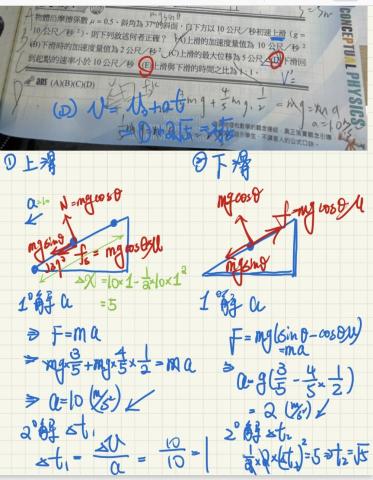 物體沿摩擦係數 μ=0.5、斜角為 37°的斜面,自下方以 10 公尺/秒初速上滑(g=
10 公尺/秒²),則下列敘述何者正確? (A)上滑的加速度量值為 10 公尺/秒²
(B)下滑時的加速度量值為 2 公尺/秒² (C)上滑的最大位移為 5 公尺 (D)下滑回
到起點的速率小於 10 公尺/秒 (E)上滑與下滑的時間之比為 1:1。
答 (A)(B)(C)(D)
CONCEPTUAL PHYSICS
(D) V = V₀+at
①上滑
a=10
N=mgcosθ
mgsinθ
fₖ = mgcosθμ
Δx=10×1-½×10×1²
=5
1°解 a
⇒ F=ma
⇒ mg×3/5+mg×4/5×1/2=ma
⇒ a=10(m/s²)
2°解 Δt₁
Δt₁ = ΔV/a = 10/10 = 1
②下滑
mgcosθ
f=mgcosθμ
mgsinθ
1°解 a
F=mg(sinθ-cosθμ)
=ma
⇒ a=g(3/5-4/5×1/2)
=2(m/s²)
2°解 Δt₂
½×2×(Δt₂)²=5⇒t₂=√5